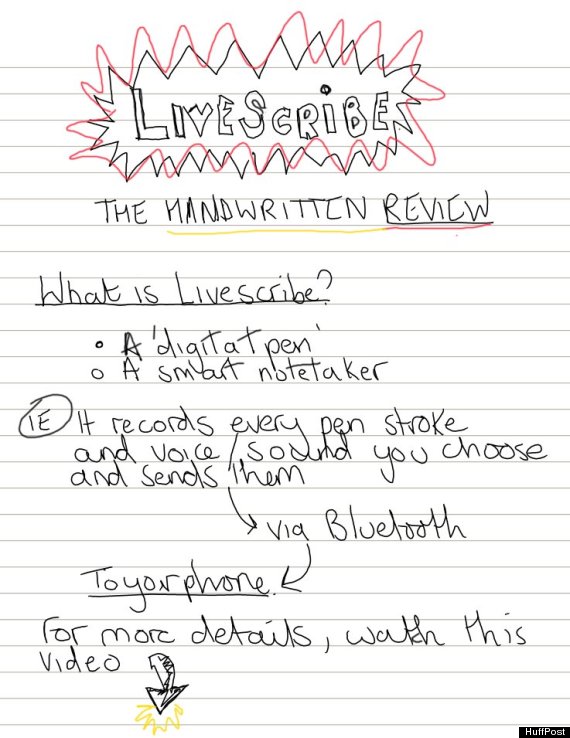 LIVESCRIBE
THE HANDWRITTEN REVIEW
What is Livescribe?
• A 'digital pen'
○ A smart notetaker
IE It records every pen stroke
and voice / sound you choose
and sends them
via Bluetooth
To your phone.
For more details, watch this
video
HuffPost